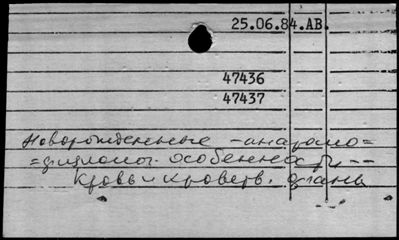 25.06.84.АВ.
47436
47437
Новорожденные - анатомо=
=физиолог. особенности --
кровь и кроветв. органы